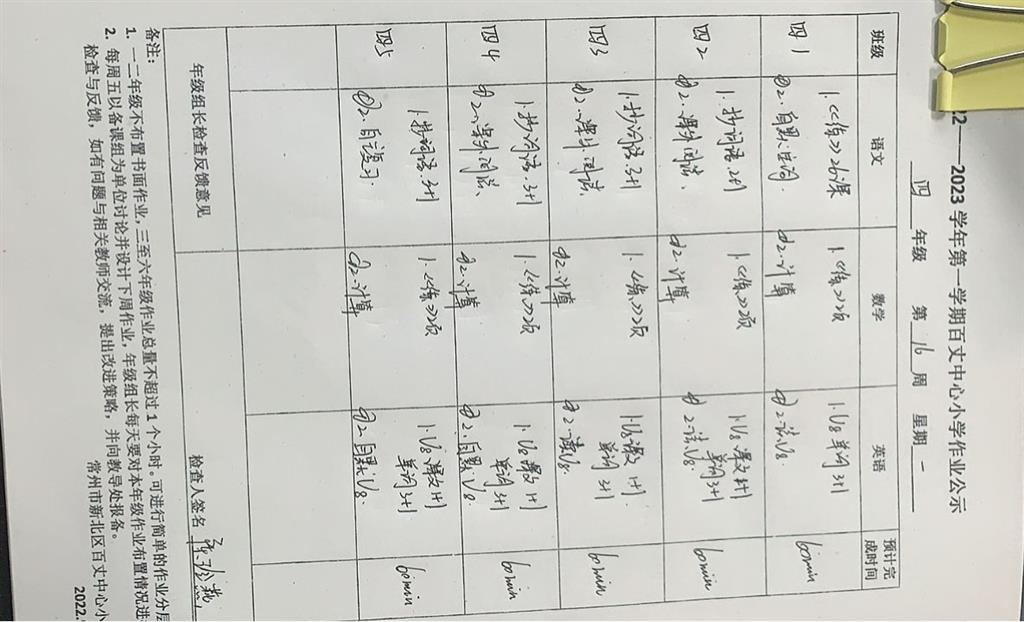 22——2023 学年第一学期百丈中心小学作业公示
四 年级 第 16 周 星期 一
班级 语文 数学 英语 预计完成时间
四1 1.<<练>>26课 1.<<练>>2页 1.U8 单词 3+1 60min
②2.自默生词. ②2.计算 ②2.读U8.
四2 1.抄词语.2+1 1.<<练>>2页 1.U8 课文 1+1 单词 3+1 60min
②2.课外阅读. ②2.计算 ②2.读U8.
四3 1.抄词语.3+1 1.<<练>>2页 1.U8 课文 1+1 单词 3+1 60min
②2.课外阅读. ②2.计算 ②2.读U8.
四4 1.抄词语.3+1 1.<<练>>2页 1.U8 课文 1+1 单词 3+1 60min
②2.课外阅读. ②2.计算 ②2.自默U8
四5 1.抄词语.3+1 1.<<练>>2页 1.U8 课文 1+1 单词 3+1 60min
②2.自复习. ②2.计算 ②2.自默U8.
年级组长检查反馈意见 检查人签名
备注：
1. 一二年级不布置书面作业，三至六年级作业总量不超过 1 个小时。可进行简单的作业分层
2. 每周五以备课组为单位讨论并设计下周作业，年级组长每天要对本年级作业布置情况进
检查与反馈，如有问题与相关教师交流，提出改进策略，并向教导处报备。
常州市新北区百丈中心小
2022.